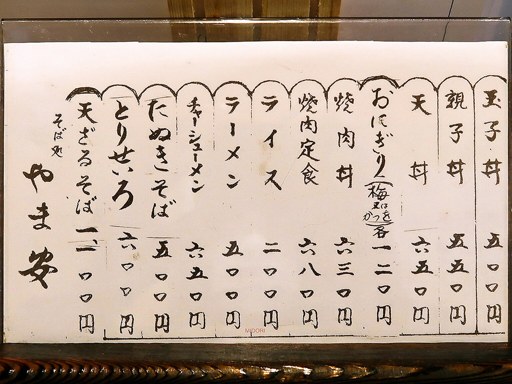 玉子丼 五〇〇円
親子丼 五五〇円
天丼 六五〇円
おにぎり(梅又はかつを)各一二〇円
焼肉丼 六三〇円
焼肉定食 六八〇円
ライス 二〇〇円
ラーメン 五〇〇円
チャーシューメン 六五〇円
たぬきそば 五〇〇円
とりせいろ 六〇〇円
天ざるそば 一、一〇〇円
そば処
やま安